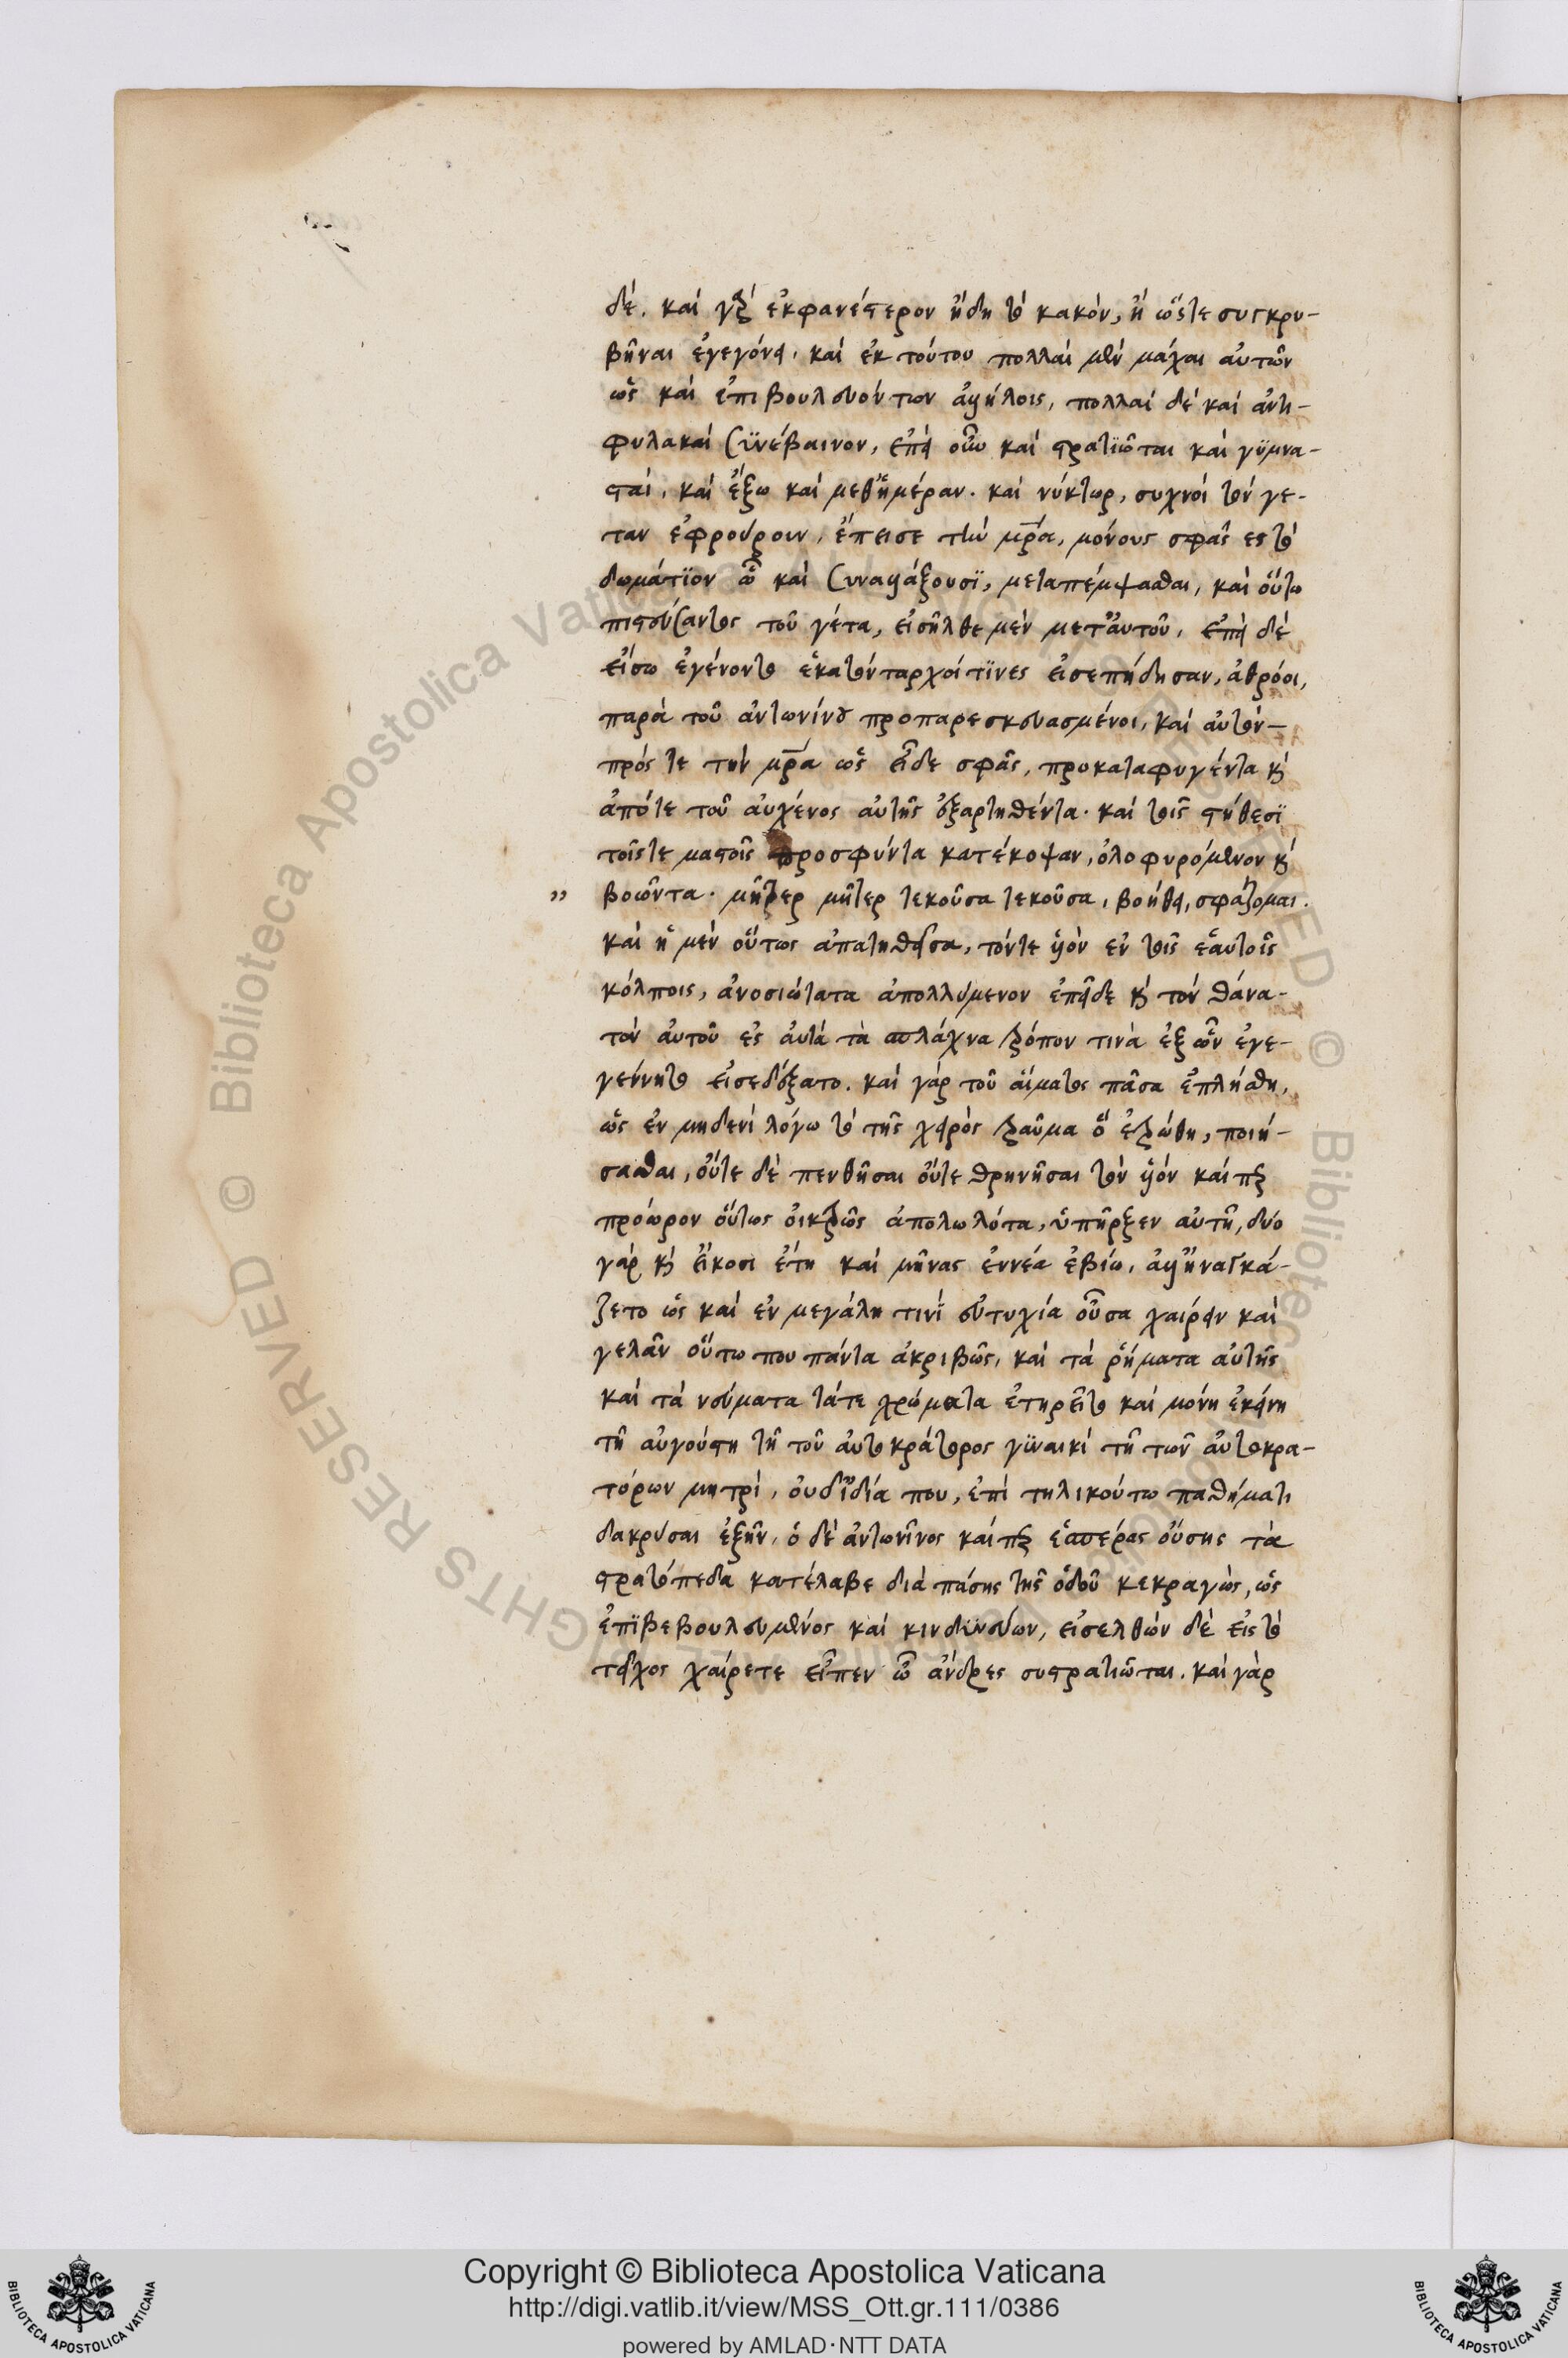 δέ. καὶ γὰρ ἐκφανέστερον ἤδη τὸ κακόν, ἢ ὥστε συγκρυ-
βῆναι ἐγεγόνει, καὶ ἐκ τούτου πολλαὶ μὲν μάχαι αὐτῶν
ὡς καὶ ἐπιβουλευόντων ἀλλήλοις, πολλαὶ δὲ καὶ ἀντι-
φυλακαὶ συνέβαινον, ἐπεὶ οὖν καὶ στρατιῶται καὶ γυμνα-
σταί, καὶ ἔξω καὶ μεθ' ἡμέραν. καὶ νύκτωρ, συχνοὶ τὸν γέ-
ταν ἐφρούρουν, ἔπεισε τὴν μρα, μόνους σφᾶς ες τὸ
δωμάτϊον ὡς καὶ συναλλάξουσϊ, μεταπέμψασθαι, καὶ οὕτω
πιστεύσαντος τοῦ γέτα, εἰσῆλθε μὲν μετ' αὐτοῦ, ἐπεὶ δὲ
εἴσω ἐγένοντο ἑκατόνταρχοί τϊνες εἰσεπήδησαν, ἀθρόοι,
παρὰ τοῦ ἀντωνίνου προπαρεσκευασμένοι, καὶ αὐτὸν-
πρός τε τὴν μρα ὡς εἶδε σφᾶς, προκαταφυγόντα κ
ἀπό τε τοῦ αὐχένος αὐτῆς ἐξαρτηθέντα. καὶ τοῖς στήθεσϊ
τοῖς τε μαστοῖς προσφύντα κατέκοψαν, ὀλοφυρόμενον κ
" βοῶντα. μῆτερ μῆτερ τεκοῦσα τεκοῦσα, βοήθει, σφάζομαι.
καὶ ἡ μὲν οὕτως ἀπατηθεῖσα, τόν τε ὑὸν ἐν τοῖς ἑαυτοῖς
κόλποις, ἀνοσιώτατα ἀπολλύμενον ἐπεῖδε κ τὸν θάνα-
τον αὐτοῦ ἐς αὐτὰ τὰ σπλάχνα τρόπον τινὰ ἐξ ὧν ἐγε-
γέννητο εἰσεδέξατο. καὶ γὰρ τοῦ αἵματος πᾶσα ἐπλήσθη,
ὡς ἐν μηδενὶ λόγω τὸ τῆς χειρὸς τραῦμα ὃ ἐτρώθη, ποιή-
σασθαι, οὔτε δὲ πενθῆσαι οὔτε θρηνῆσαι τὸν ὑὸν καίπερ
πρόωρον οὕτως οἰκτρῶς ἀπολωλότα, ὑπῆρξεν αὐτῆ, δύο
γὰρ κ εἴκοσι ἔτη καὶ μῆνας ἐννέα ἐβίω, ἀλλ' ἠναγκά-
ζετο ὡς καὶ ἐν μεγάλη τινὶ εὐτυχία οὖσα χαίρειν καὶ
γελᾶν οὕτω που πάντα ἀκριβῶς, καὶ τὰ ῥήματα αὐτῆς
καὶ τὰ νεύματα τά τε χρώματα ἐτηρεῖτο καὶ μόνη ἐκείνη
τῆ αὐγούστη τῆ τοῦ αὐτοκράτορος γυναικὶ τῆ τῶν αὐτοκρα-
τόρων μητρί, οὐδ' ἰδία που, ἐπὶ τηλικούτω παθήματι
δακρύσαι ἐξῆν, ὁ δὲ ἀντωνῖνος καίπερ ἑσπέρας οὔσης τὰ
στρατόπεδα κατέλαβε διὰ πάσης τῆς ὁδοῦ κεκραγώς, ὡς
ἐπϊβεβουλευμένος καὶ κινδυνεύων, εἰσελθὼν δὲ εἰς τὸ
τεῖχος χαίρετε εἶπεν ὦ ἄνδρες συστρατιῶται. καὶ γὰρ
Copyright © Biblioteca Apostolica Vaticana
http://digi.vatlib.it/view/MSS_Ott.gr.111/0386
powered by AMLAD·NTT DATA
BIBLIOTECA APOSTOLICA VATICANA
BIBLIOTECA APOSTOLICA VATICANA